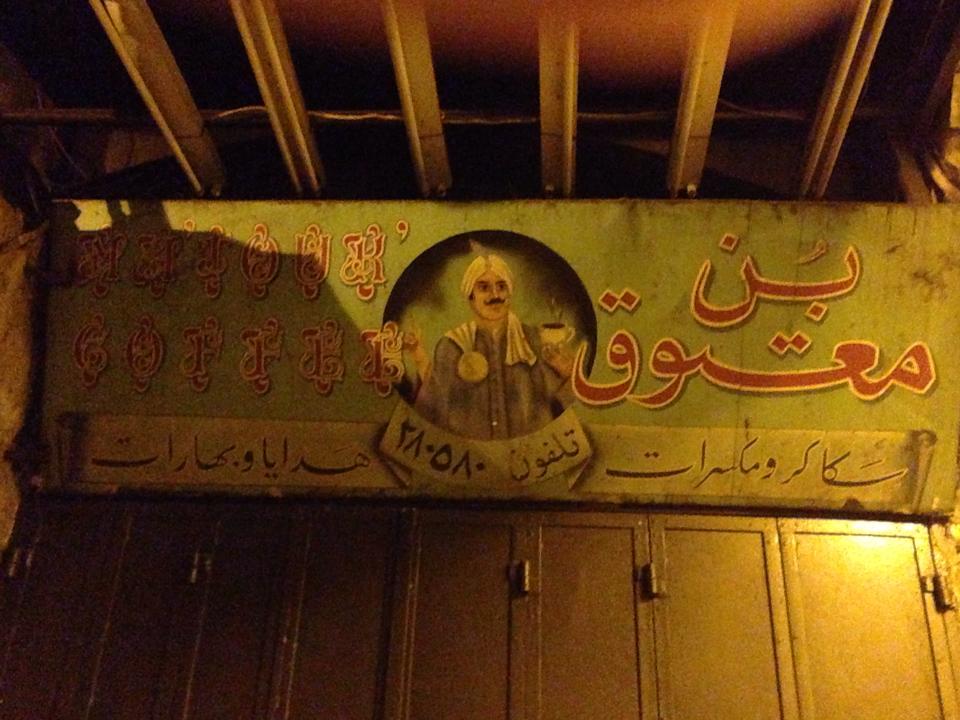 بُن
معتوق
MA'TOUK'
COFFEE
سكاكر ومكسرات
تلفون ٢٨٠٥٨٠
هدايا وبهارات